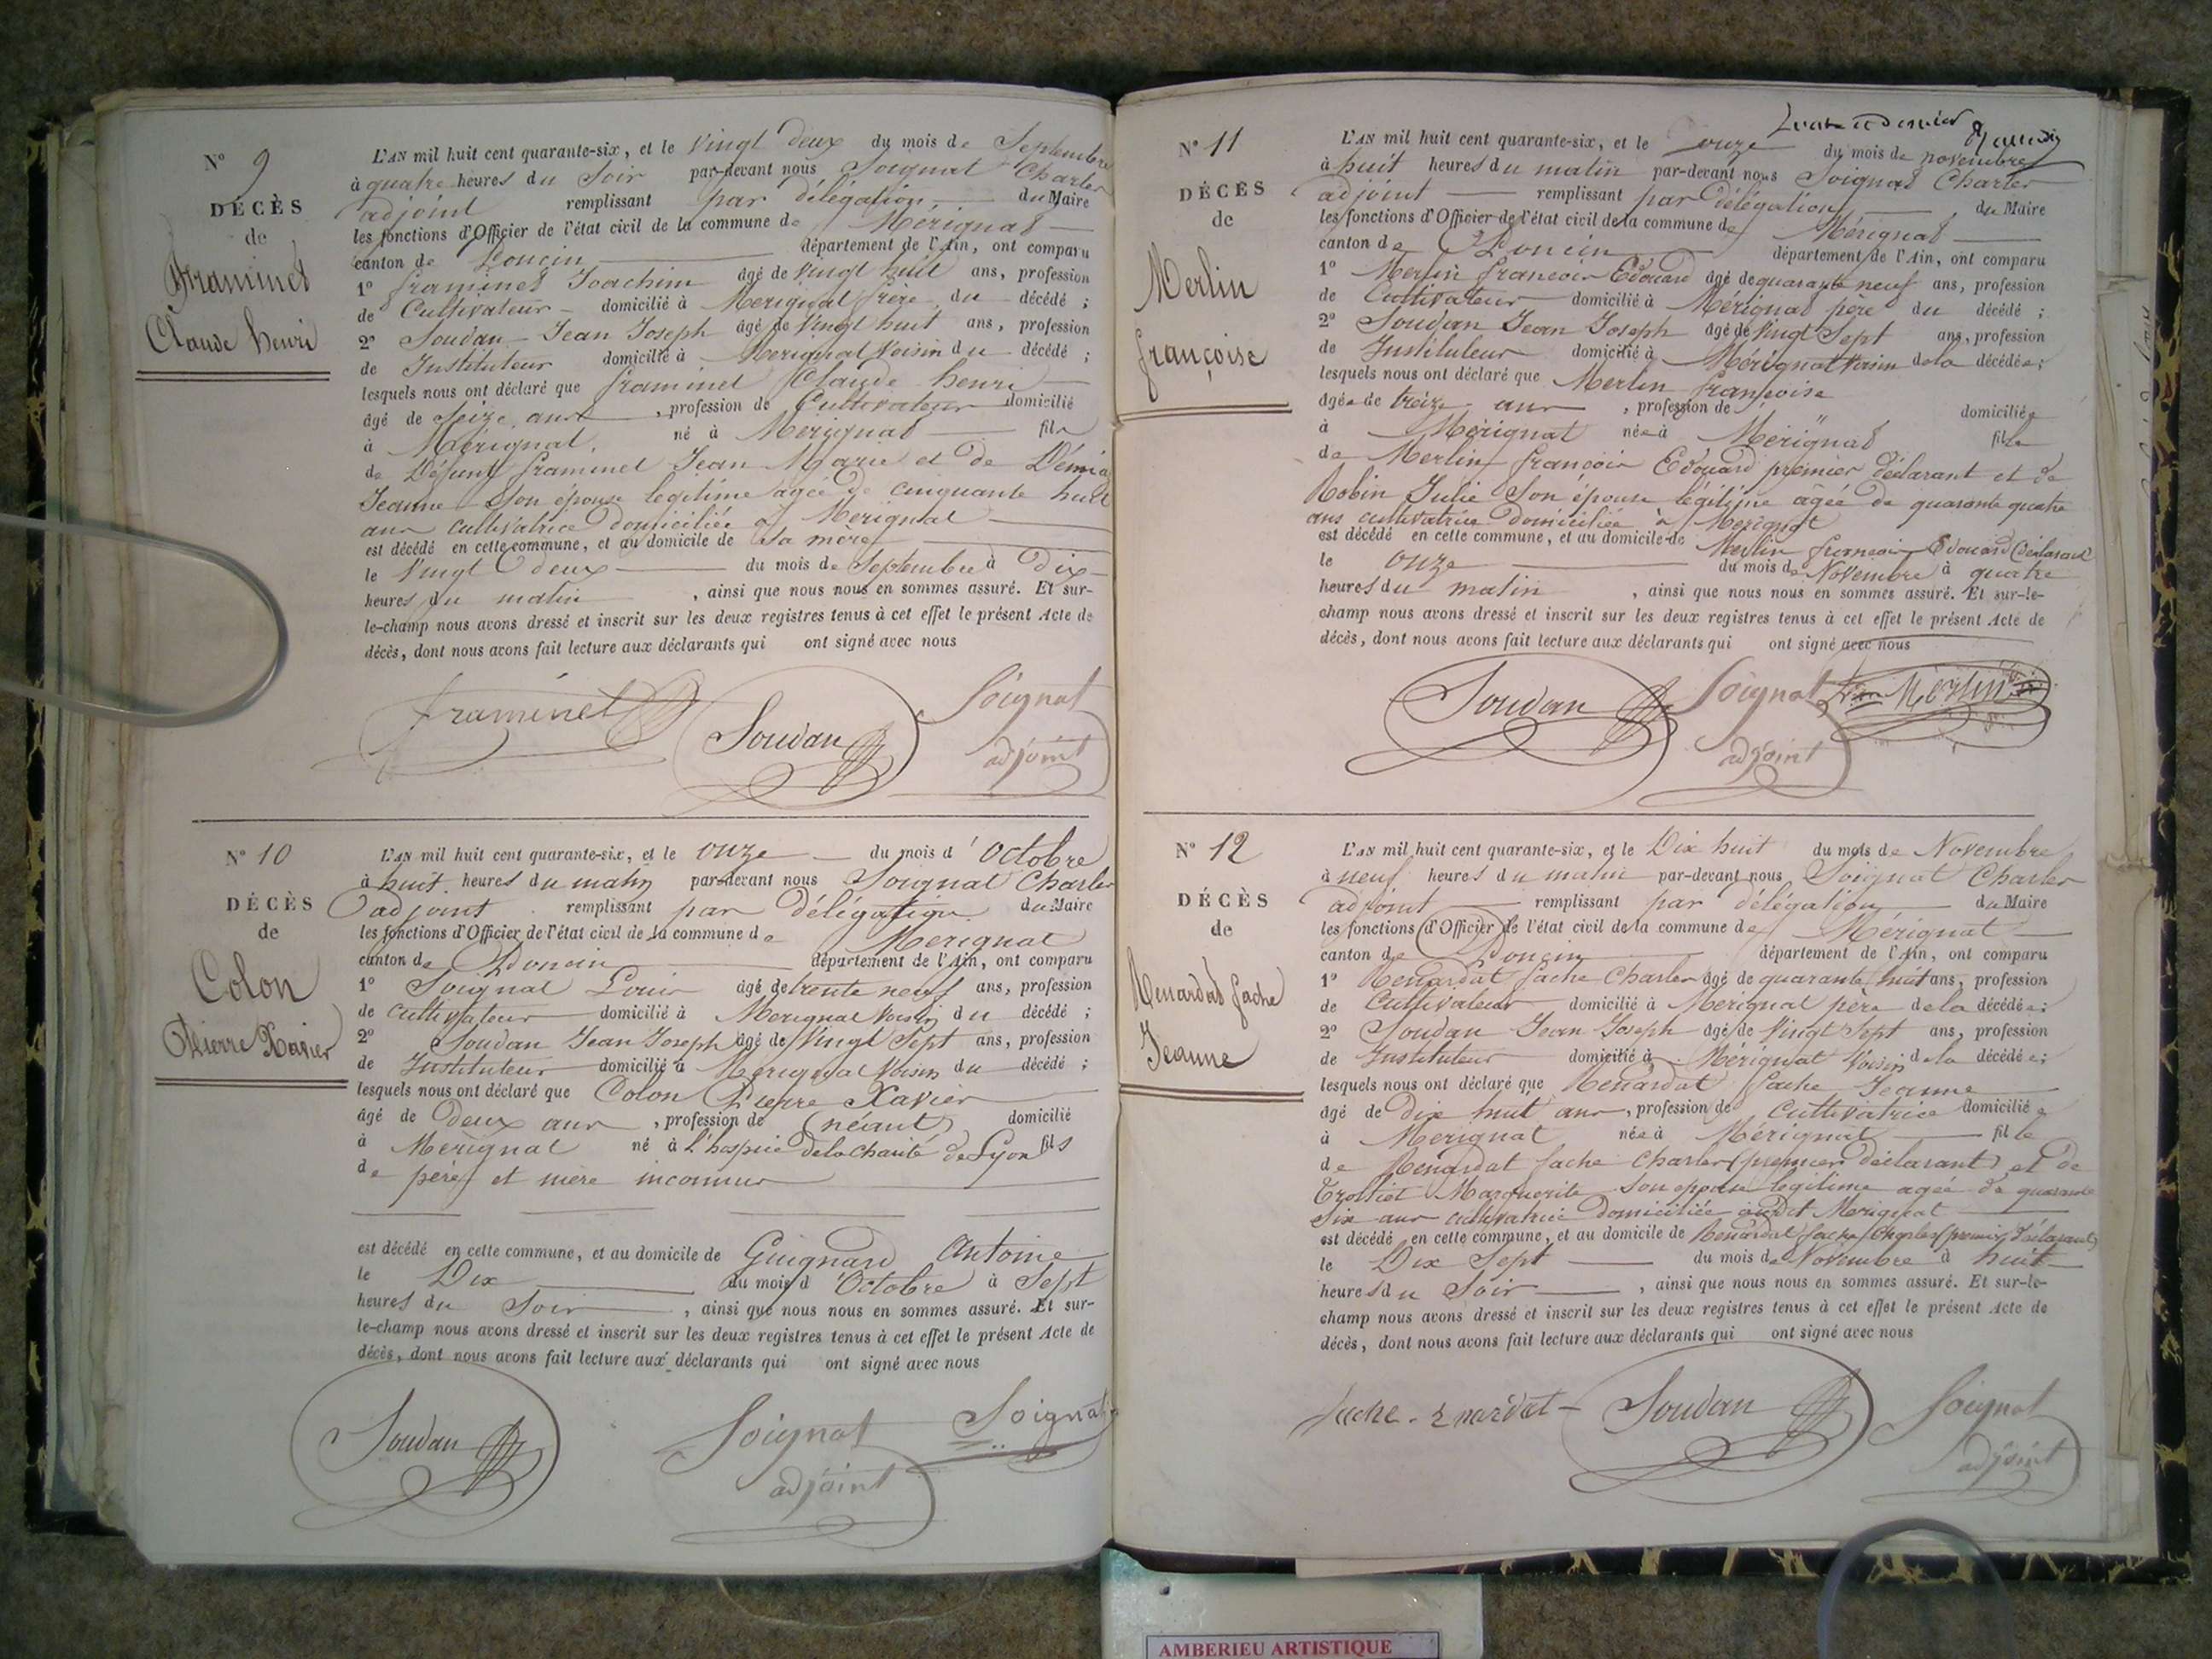 N° 9
DÉCÈS
de
Framinet
Claude henri
L'AN mil huit cent quarante-six, et le Vingt deux du mois de Septembre
à quatre heures du Soir par-devant nous Soignat Charles
adjoint remplissant par délégation, du Maire
les fonctions d'Officier de l'état civil de la commune de Merignat
canton de Poncin département de l'Ain, ont comparu
1° framinet Joachim âgé de Vingt huit ans, profession
de Cultivateur domicilié à Merignat frère du décédé ;
2° Soudan Jean Joseph âgé de Vingt huit ans, profession
de Instituteur domicilié à Merignat Voisin du décédé ;
lesquels nous ont déclaré que framinet Claude henri
âgé de Seize ans, profession de Cultivateur domicilié
à Mérignat, né à Merignat fils
de Défunt framinet Jean Marie et de
Jeanne Son épouse légitime agée de cinquante huit
ans cultivatrice domiciliée à Merignat
est décédé en cette commune, et au domicile de Sa mère
le Vingt deux du mois de Septembre à Dix
heures du matin, ainsi que nous nous en sommes assuré. Et sur-
le-champ nous avons dressé et inscrit sur les deux registres tenus à cet effet le présent Acte de
décès, dont nous avons fait lecture aux déclarants qui ont signé avec nous
framinet Soudan Soignat
adjoint
N° 10
DÉCÈS
de
Colon
Pierre Xavier
L'AN mil huit cent quarante-six, et le onze du mois d'Octobre
à huit heures du matin par-devant nous Soignat Charles
adjoint remplissant par délégation du Maire
les fonctions d'Officier de l'état civil de la commune de Merignat
canton de Poncin département de l'Ain, ont comparu
1° Soignat Louis âgé de trente neuf ans, profession
de Cultivateur domicilié à Merignat Voisin du décédé ;
2° Soudan Jean Joseph âgé de Vingt Sept ans, profession
de Instituteur domicilié à Merignat Voisin du décédé ;
lesquels nous ont déclaré que Colon Pierre Xavier
âgé de Deux ans, profession de (néant) domicilié
à Merignat né à l'hospice de la Charité de Lyon fils
de père et mère inconnus
est décédé en cette commune, et au domicile de Guignard Antoine
le Dix du mois d'Octobre à Sept
heures du Soir, ainsi que nous nous en sommes assuré. Et sur-
le-champ nous avons dressé et inscrit sur les deux registres tenus à cet effet le présent Acte de
décès, dont nous avons fait lecture aux déclarants qui ont signé avec nous
Soudan Soignat Soignat
adjoint
N° 11
DÉCÈS
de
Merlin
françoise
L'AN mil huit cent quarante-six, et le onze du mois de novembre
à huit heures du matin par-devant nous Soignat Charles
adjoint remplissant par délégation du Maire
les fonctions d'Officier de l'état civil de la commune de Mérignat
canton de Poncin département de l'Ain, ont comparu
1° Merlin francois Edouard âgé de quarante neuf ans, profession
de Cultivateur domicilié à Mérignat père du décédé ;
2° Soudan Jean Joseph âgé de Vingt Sept ans, profession
de Instituteur domicilié à Mérignat Voisin de la décédée ;
lesquels nous ont déclaré que Merlin françoise
âgée de treize ans, profession de " domiciliée
à Mérignat née à Mérignat fille
de Merlin françois Edouard premier déclarant et de
Robin Julie Son épouse légitime âgée de quarante quatre
ans cultivatrice domiciliée à Merignat
est décédé en cette commune, et au domicile de Merlin francois Edouard (déclarant
le onze du mois de Novembre à quatre
heures du matin, ainsi que nous nous en sommes assuré. Et sur-le-
champ nous avons dressé et inscrit sur les deux registres tenus à cet effet le présent Acte de
décès, dont nous avons fait lecture aux déclarants qui ont signé avec nous
Soudan Soignat Merlin
adjoint
N° 12
DÉCÈS
de
Renardat fache
Jeanne
L'AN mil huit cent quarante-six, et le Dix huit du mois de Novembre
à neuf heures du matin par-devant nous Soignat Charles
adjoint remplissant par délégation du Maire
les fonctions d'Officier de l'état civil de la commune de Mérignat
canton de Poncin département de l'Ain, ont comparu
1° Renardat fache Charles âgé de quarante huit ans, profession
de Cultivateur domicilié à Merignat père de la décédée ;
2° Soudan Jean Joseph âgé de Vingt Sept ans, profession
de Instituteur domicilié à Mérignat Voisin de la décédée ;
lesquels nous ont déclaré que Renardat fache Jeanne
âgé de dix huit ans, profession de Cultivatrice domiciliée
à Merignat née à Mérignat fille
de Renardat fache Charles (premier déclarant) et de
Trolliet Marguerite Son epouse legitime agée de quarante
Six ans cultivatrice domiciliée audit Merignat
est décédé en cette commune, et au domicile de Renardat fache Charles (premier déclarant)
le Dix Sept du mois de Novembre à huit
heures du Soir, ainsi que nous nous en sommes assuré. Et sur-le-
champ nous avons dressé et inscrit sur les deux registres tenus à cet effet le présent Acte de
décès, dont nous avons fait lecture aux déclarants qui ont signé avec nous
fache Soudan Soignat
adjoint
AMBERIEU ARTISTIQUE